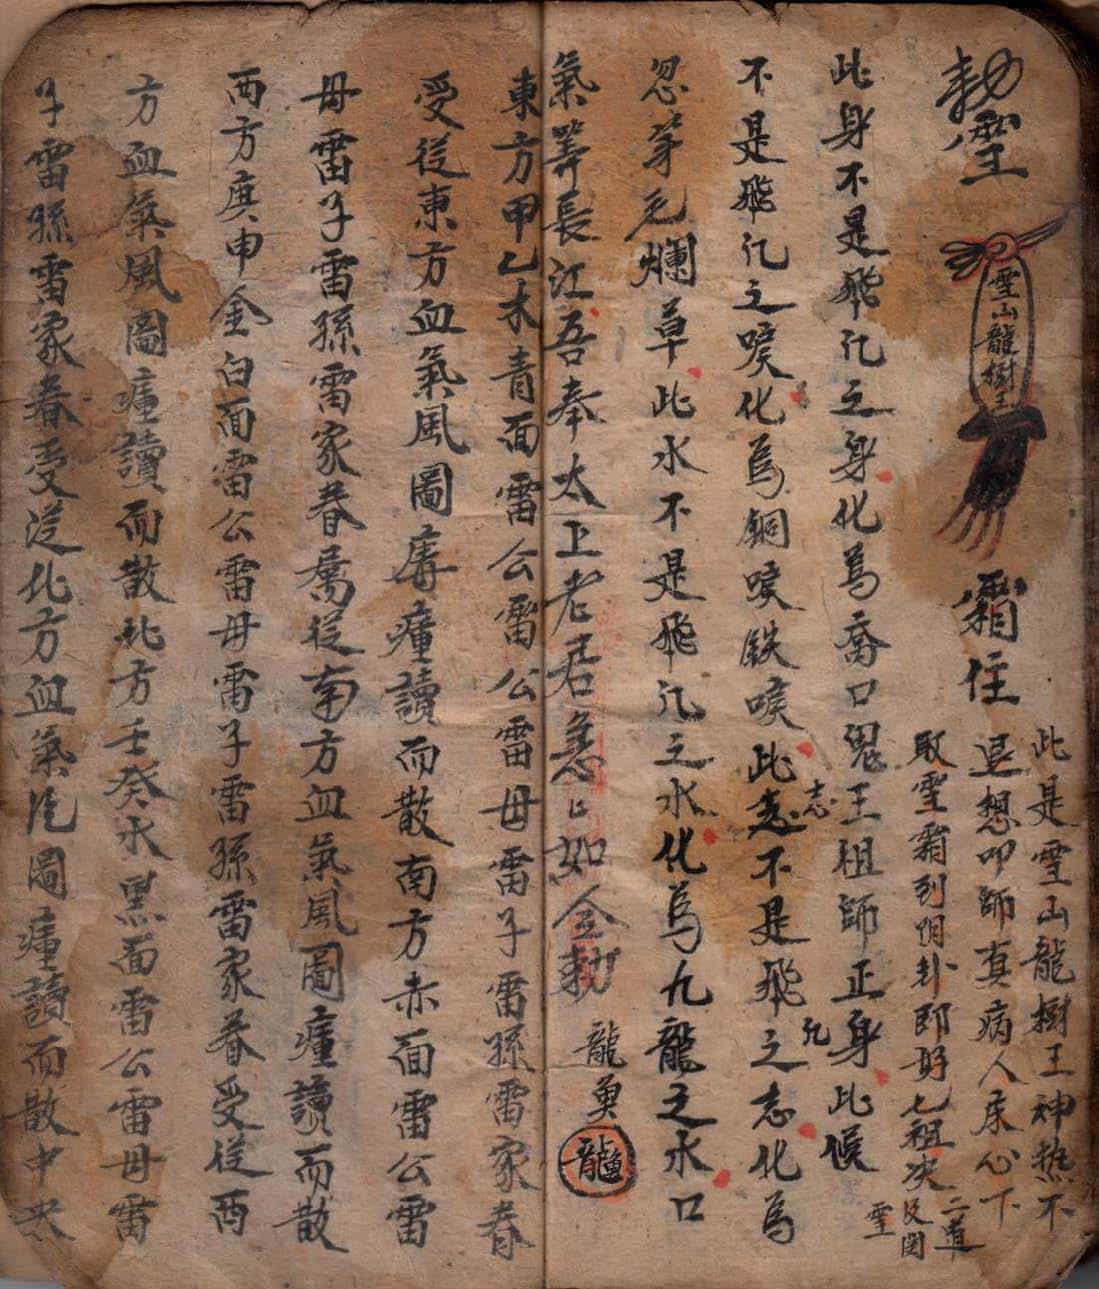 勅雪
雪山龍樹王
霜住
此是雪山龍樹王神热不
退想叩師真病人床心下
取雪霜列阴卦即好七祖决
二道
及囡
雪
此身不是飛凢之身化為喬口鬼王祖師正身此喉
不是飛凢之喉化為銅喉鉄喉此志不是飛凢之志化為
忽茅毛爛草此水不是飛凢之水化為九龍之水口
氣莾長江吾奉太上老君急〻如令勅
龍
龍
東方甲乙木青面雷公雷公雷母雷子雷孫雷家眷
受從東方血氣風圖瘴讀而散南方赤面雷公雷
母雷子雷孫雷家眷属從南方血氣風圖瘴讀而散
西方庚申金白面雷公雷母雷子雷孫雷家眷受從西
方血氣風圖瘴讀而散北方壬癸水黑面雷公雷母雷
子雷孫雷家眷受從北方血氣圖瘴讀而散中央